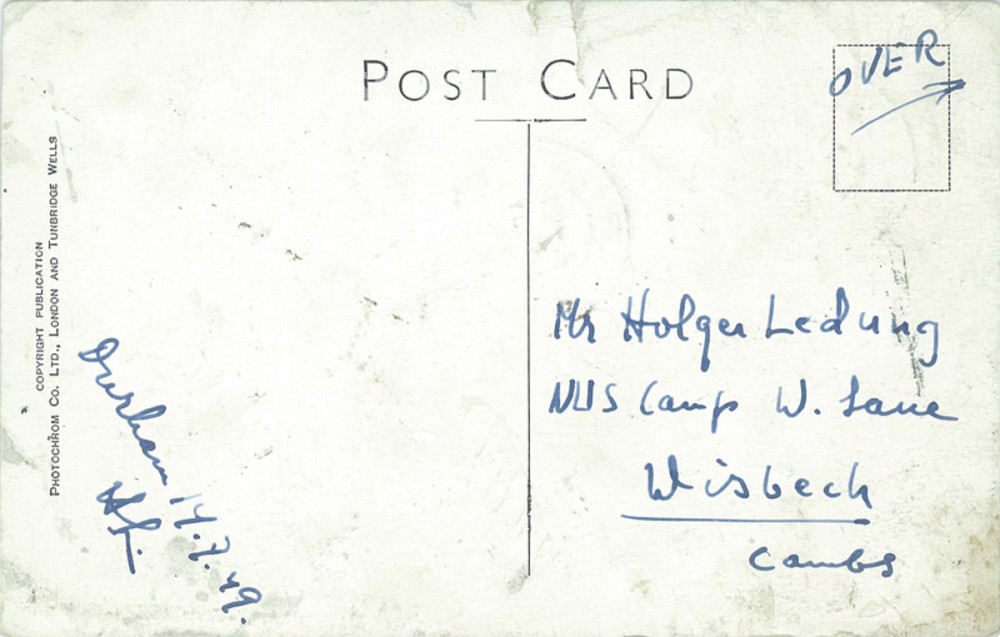 POST CARD
OVER
COPYRIGHT PUBLICATION
PHOTOCHROM CO. LTD., LONDON AND TUNBRIDGE WELLS
Mr Holger Ledung
NUS Camp W. Lane
Wisbech
Cambs
Durham 14.7.49.